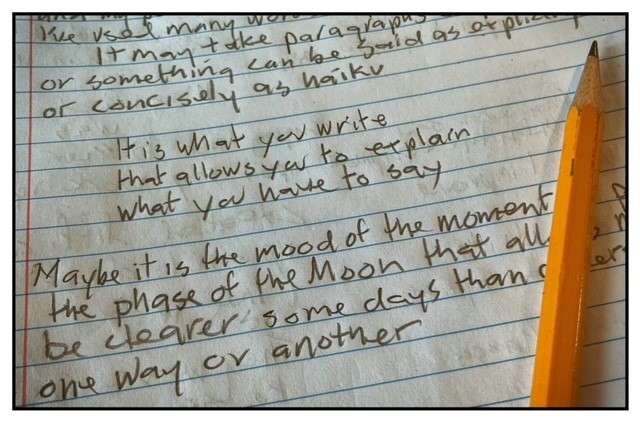 I've used many wor
It may take paragraphs
or something can be said as explicitly
or concisely as haiku
It is what you write
that allows you to explain
what you have to say
Maybe it is the mood of the moment
the phase of the Moon that all
be clearer some days than
one way or another